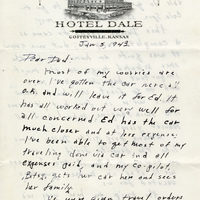 HOTEL DALE
COFFEYVILLE, KANSAS
Jan. 5, 1943.
Dear Dad:-
Most of my worries are
over. I've gotten the car here all
o.k. and will leave it for Ed. It
has all worked out very well for
all concerned. Ed has the car
much closer and at less expense.
I've been able to get most of my
traveling done via car and all
expenses paid, and my co-pilot,
Betsy, gets our car home and sees
her family.
I've
travel orders